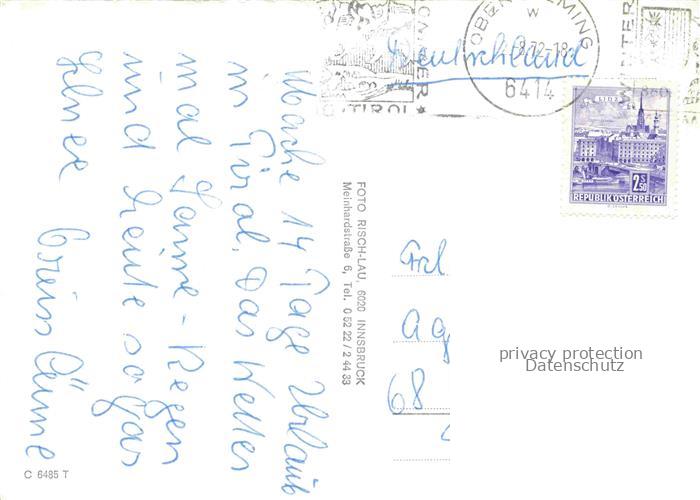 Mache 14 Tage Urlaub
in Tirol. Das Wetter
mal Sonne - Regen
und heute sogar
Schnee
Deutschland
OBER
MING
W
72-18
6414
CAMPER
TIROL
WINTER
LINZ
2.S50
REPUBLIK ÖSTERREICH
FOTO RISCH-LAU, 6020 INNSBRUCK
Meinhardstraße 6, Tel. 0 52 22 / 2 44 33
Frl
Ag
68
privacy protection
Datenschutz
C 6485 T